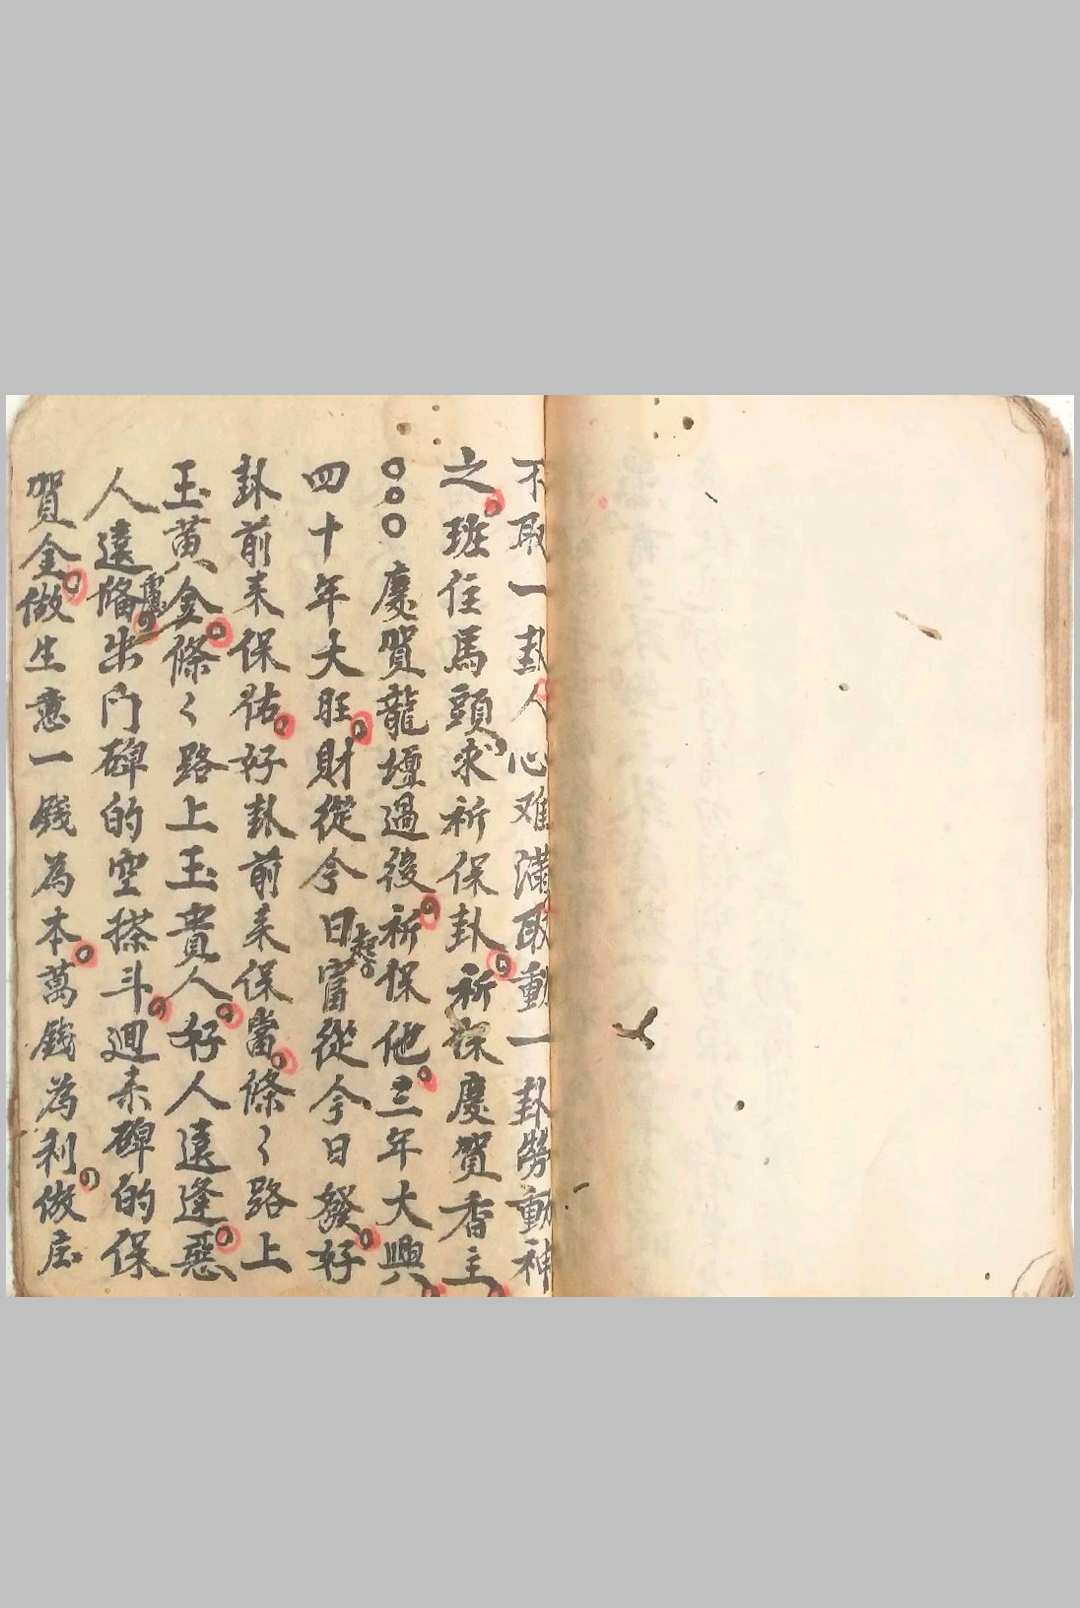 不取一卦人心难满取動一卦勞動神
之班住馬頭求祈保卦祈保慶賀香主
〇〇〇慶賀龍壇過後祈保他三年大興
四十年大旺財從今日起富從今日發好
卦前来保佑好卦前来保當條々路上
玉黄金條々路上玉貴人好人遠逢惡
人遠隔出門碑的空搽斗迴来碑的保
賀金做生意一錢為本萬錢為利做庄